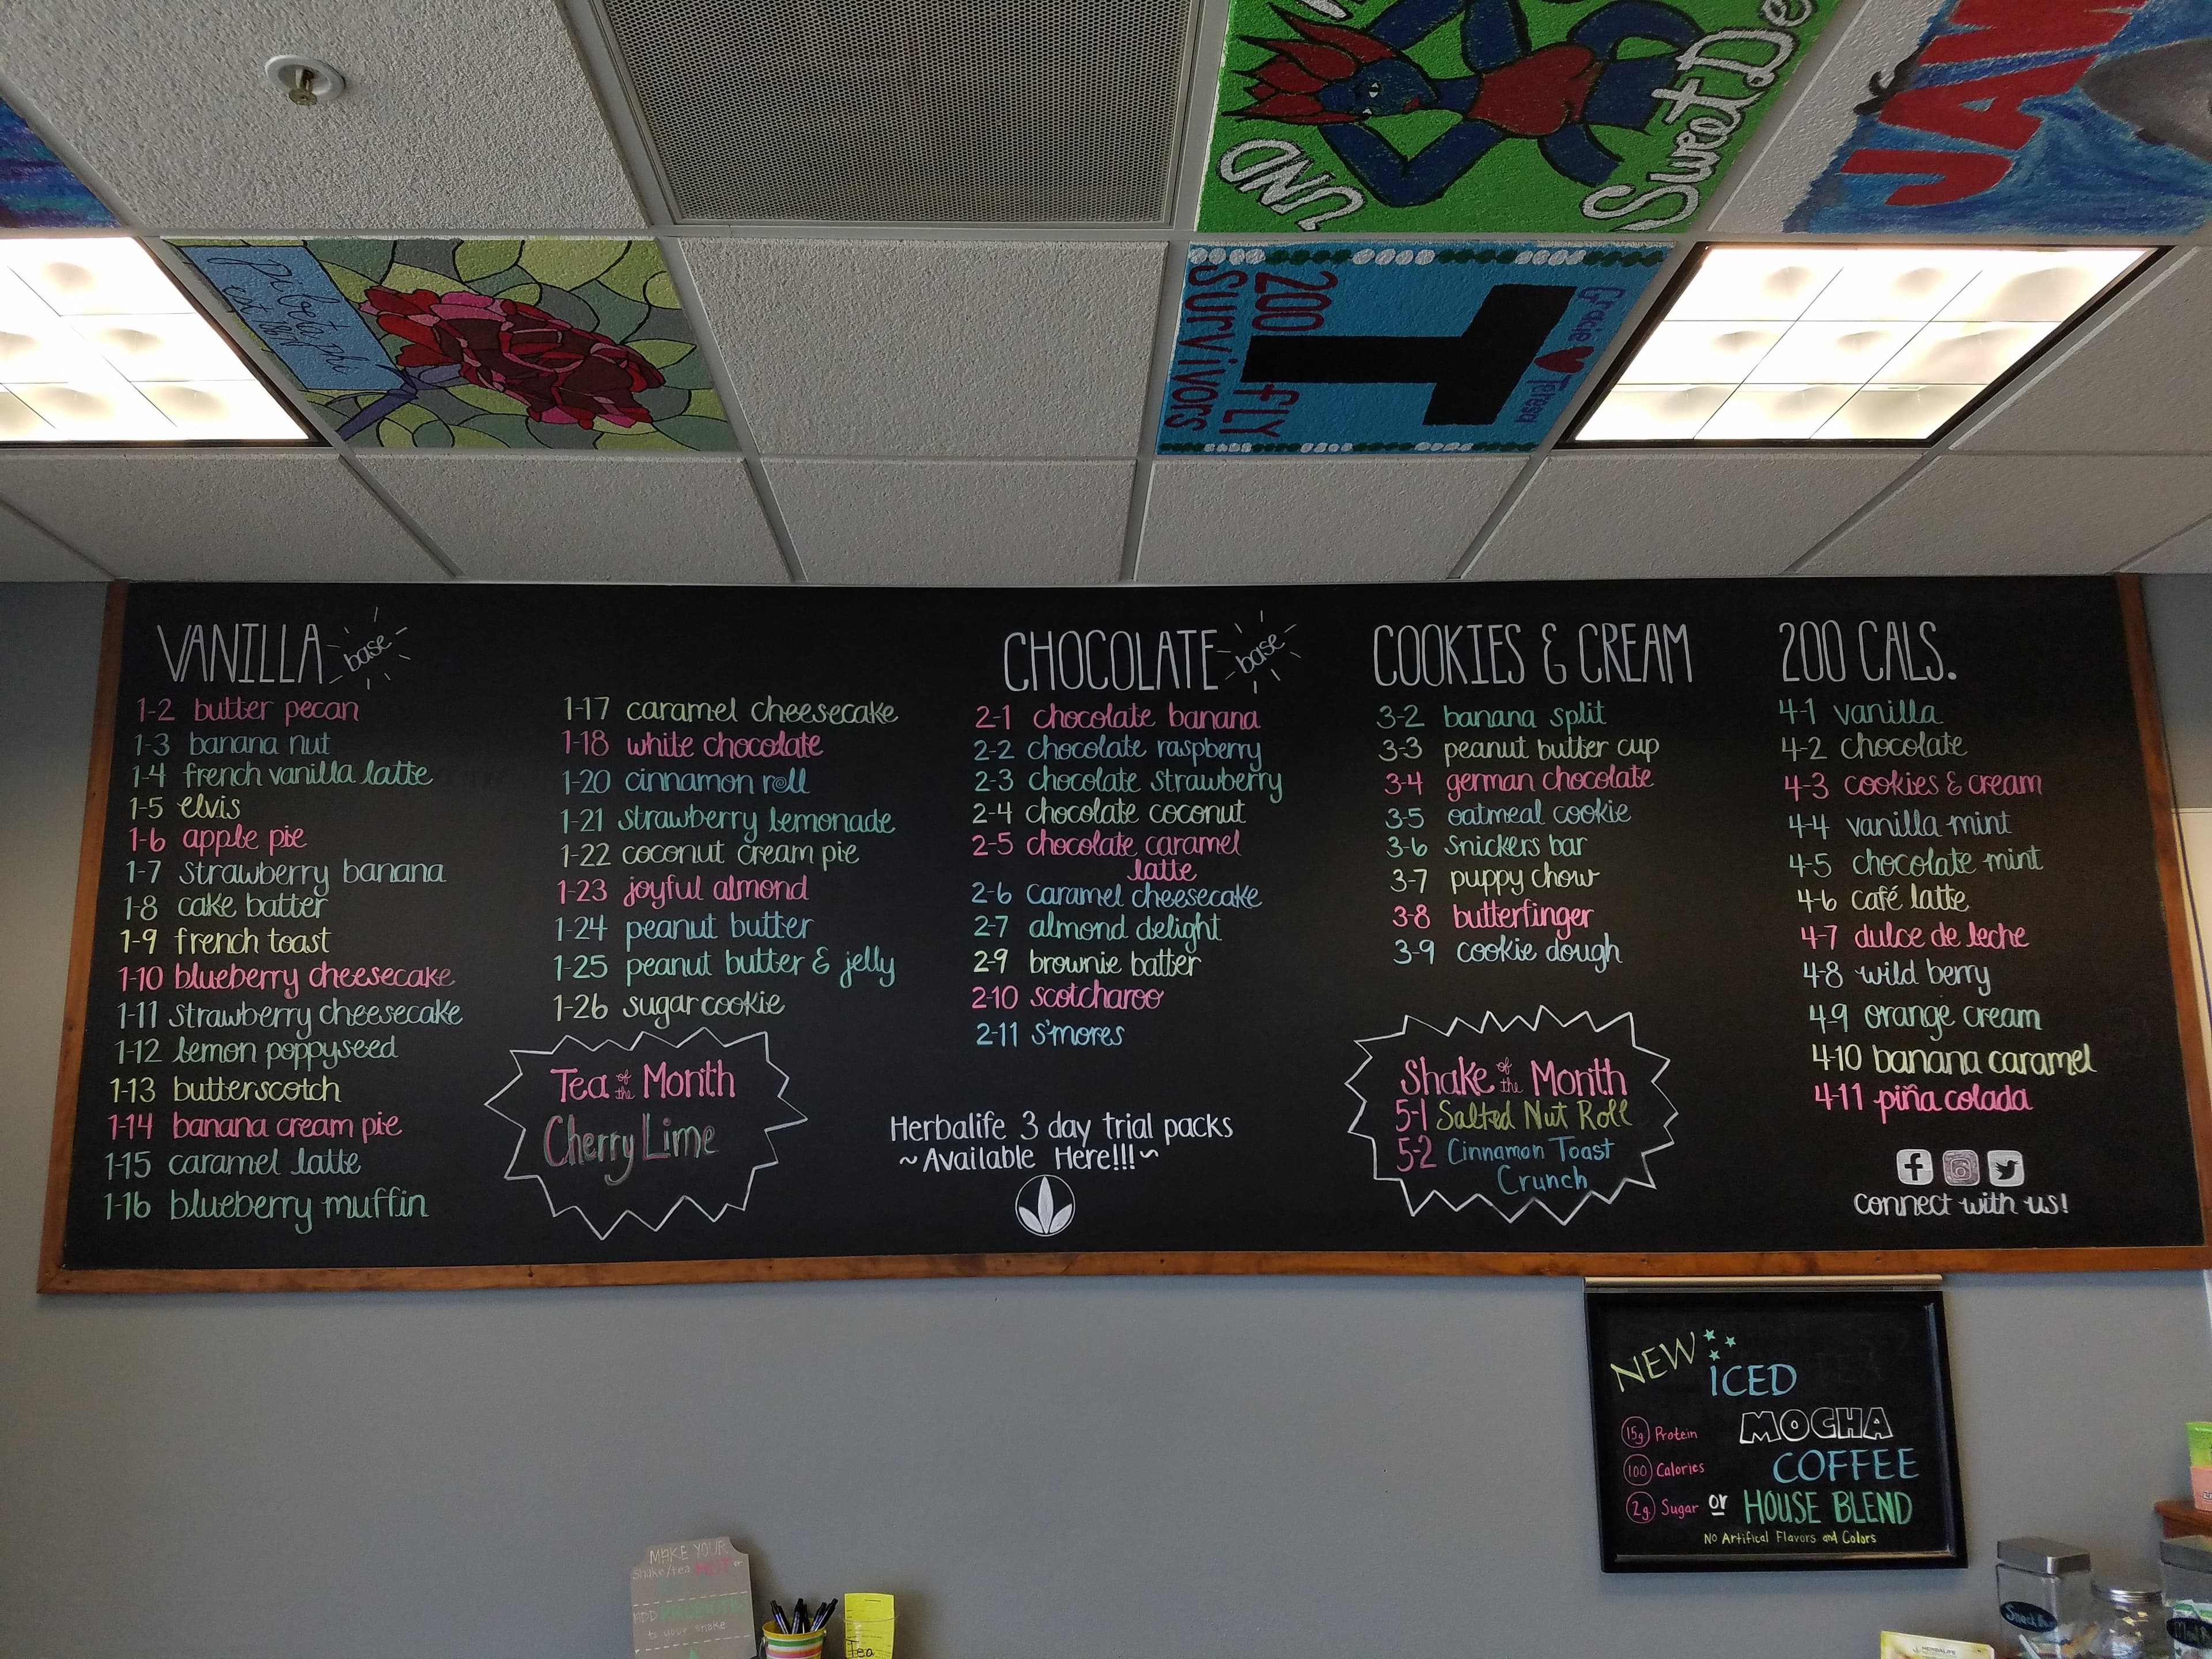 UND
Sweet De
JAW
pi beta phi
est. 1867
Gracie ♥ Teresa
T
200 FLY
Survivors
VANILLA base
1-2 butter pecan
1-3 banana nut
1-4 french vanilla latte
1-5 elvis
1-6 apple pie
1-7 strawberry banana
1-8 cake batter
1-9 french toast
1-10 blueberry cheesecake
1-11 strawberry cheesecake
1-12 lemon poppyseed
1-13 butterscotch
1-14 banana cream pie
1-15 caramel latte
1-16 blueberry muffin
1-17 caramel cheesecake
1-18 white chocolate
1-20 cinnamon roll
1-21 strawberry lemonade
1-22 coconut cream pie
1-23 joyful almond
1-24 peanut butter
1-25 peanut butter & jelly
1-26 sugar cookie
Tea of the Month
Cherry Lime
CHOCOLATE base
2-1 chocolate banana
2-2 chocolate raspberry
2-3 chocolate strawberry
2-4 chocolate coconut
2-5 chocolate caramel
latte
2-6 caramel cheesecake
2-7 almond delight
2-9 brownie batter
2-10 scotcharoo
2-11 s'mores
Herbalife 3 day trial packs
~Available Here!!!~
COOKIES & CREAM
3-2 banana split
3-3 peanut butter cup
3-4 german chocolate
3-5 oatmeal cookie
3-6 snickers bar
3-7 puppy chow
3-8 butterfinger
3-9 cookie dough
Shake of the Month
5-1 Salted Nut Roll
5-2 Cinnamon Toast
Crunch
200 CALS.
4-1 vanilla
4-2 chocolate
4-3 cookies & cream
4-4 vanilla mint
4-5 chocolate mint
4-6 café latte
4-7 dulce de leche
4-8 wild berry
4-9 orange cream
4-10 banana caramel
4-11 piña colada
connect with us!
NEW
ICED
MOCHA
COFFEE
or HOUSE BLEND
15g Protein
100 Calories
2g Sugar
No Artifical Flavors and Colors
MAKE YOUR
shake/tea HOT or
ADD
to your shake
Tea
HERBALIFE